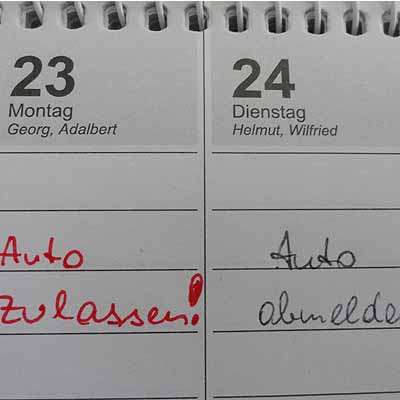 23
Montag
Georg, Adalbert
Auto
zulassen!
24
Dienstag
Helmut, Wilfried
Auto
abmelde